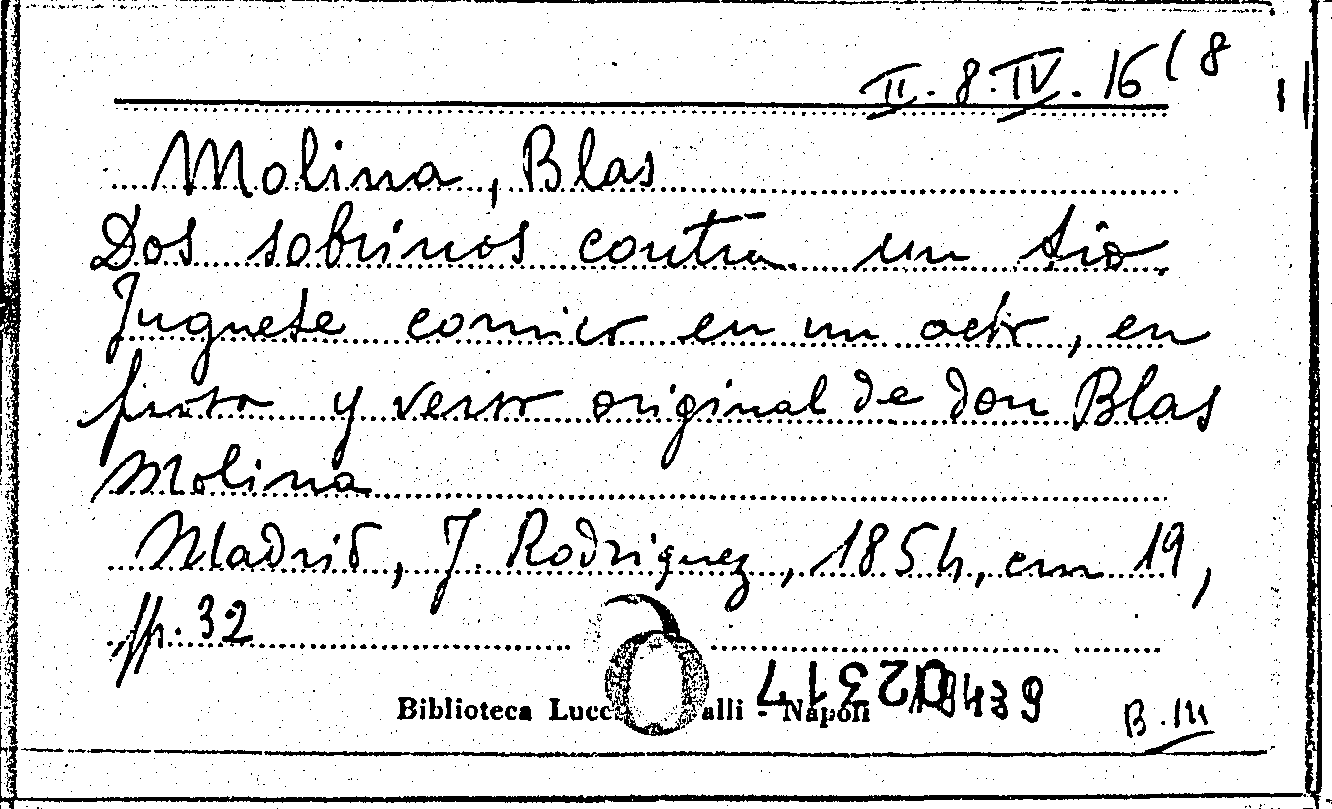 II.8.IV.16(8
Molina, Blas
Dos sobrinos contra un tio.
Juguete comico en un acto, en
prosa y verso original de don Blas
Molina
Madrid, J. Rodriguez, 1854, cm 19,
pp. 32
Biblioteca Lucc alli - Napoli
B.III